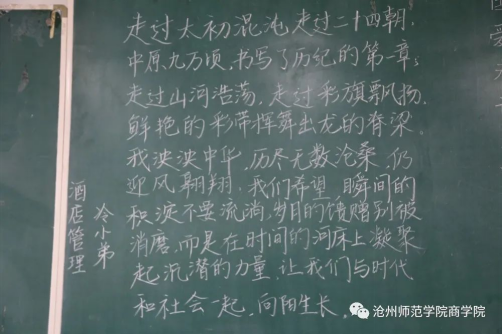 走过太初混沌,走过二十四朝.
中原九万顷,书写了历纪的第一章;
走过山河浩荡,走过彩旗飘扬.
鲜艳的彩带挥舞出龙的脊梁
我泱泱中华,历尽无数沧桑,仍
迎风翱翔,我们希望,瞬间的
积淀不要流淌,岁月的馈赠别被
消磨,而是在时间的河床上凝聚
起沉潜的力量,让我们与时代
和社会一起,向阳生长.
酒店管理
冷小弟
沧州师范学院商学院